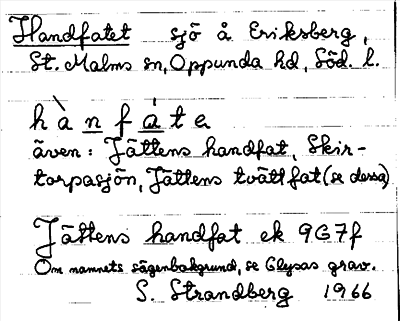 Handfatet sjö å Eriksberg,
St. Malms sn, Oppunda hd, Söd. l.
hàn fáta
även: Jättens handfat, Skir-
torpasjön, Jättens tvättfat (se dessa)
Jättens handfat ek 9G7f
Om namnets sägenbakgrund, se Glysas grav.
S. Strandberg 1966